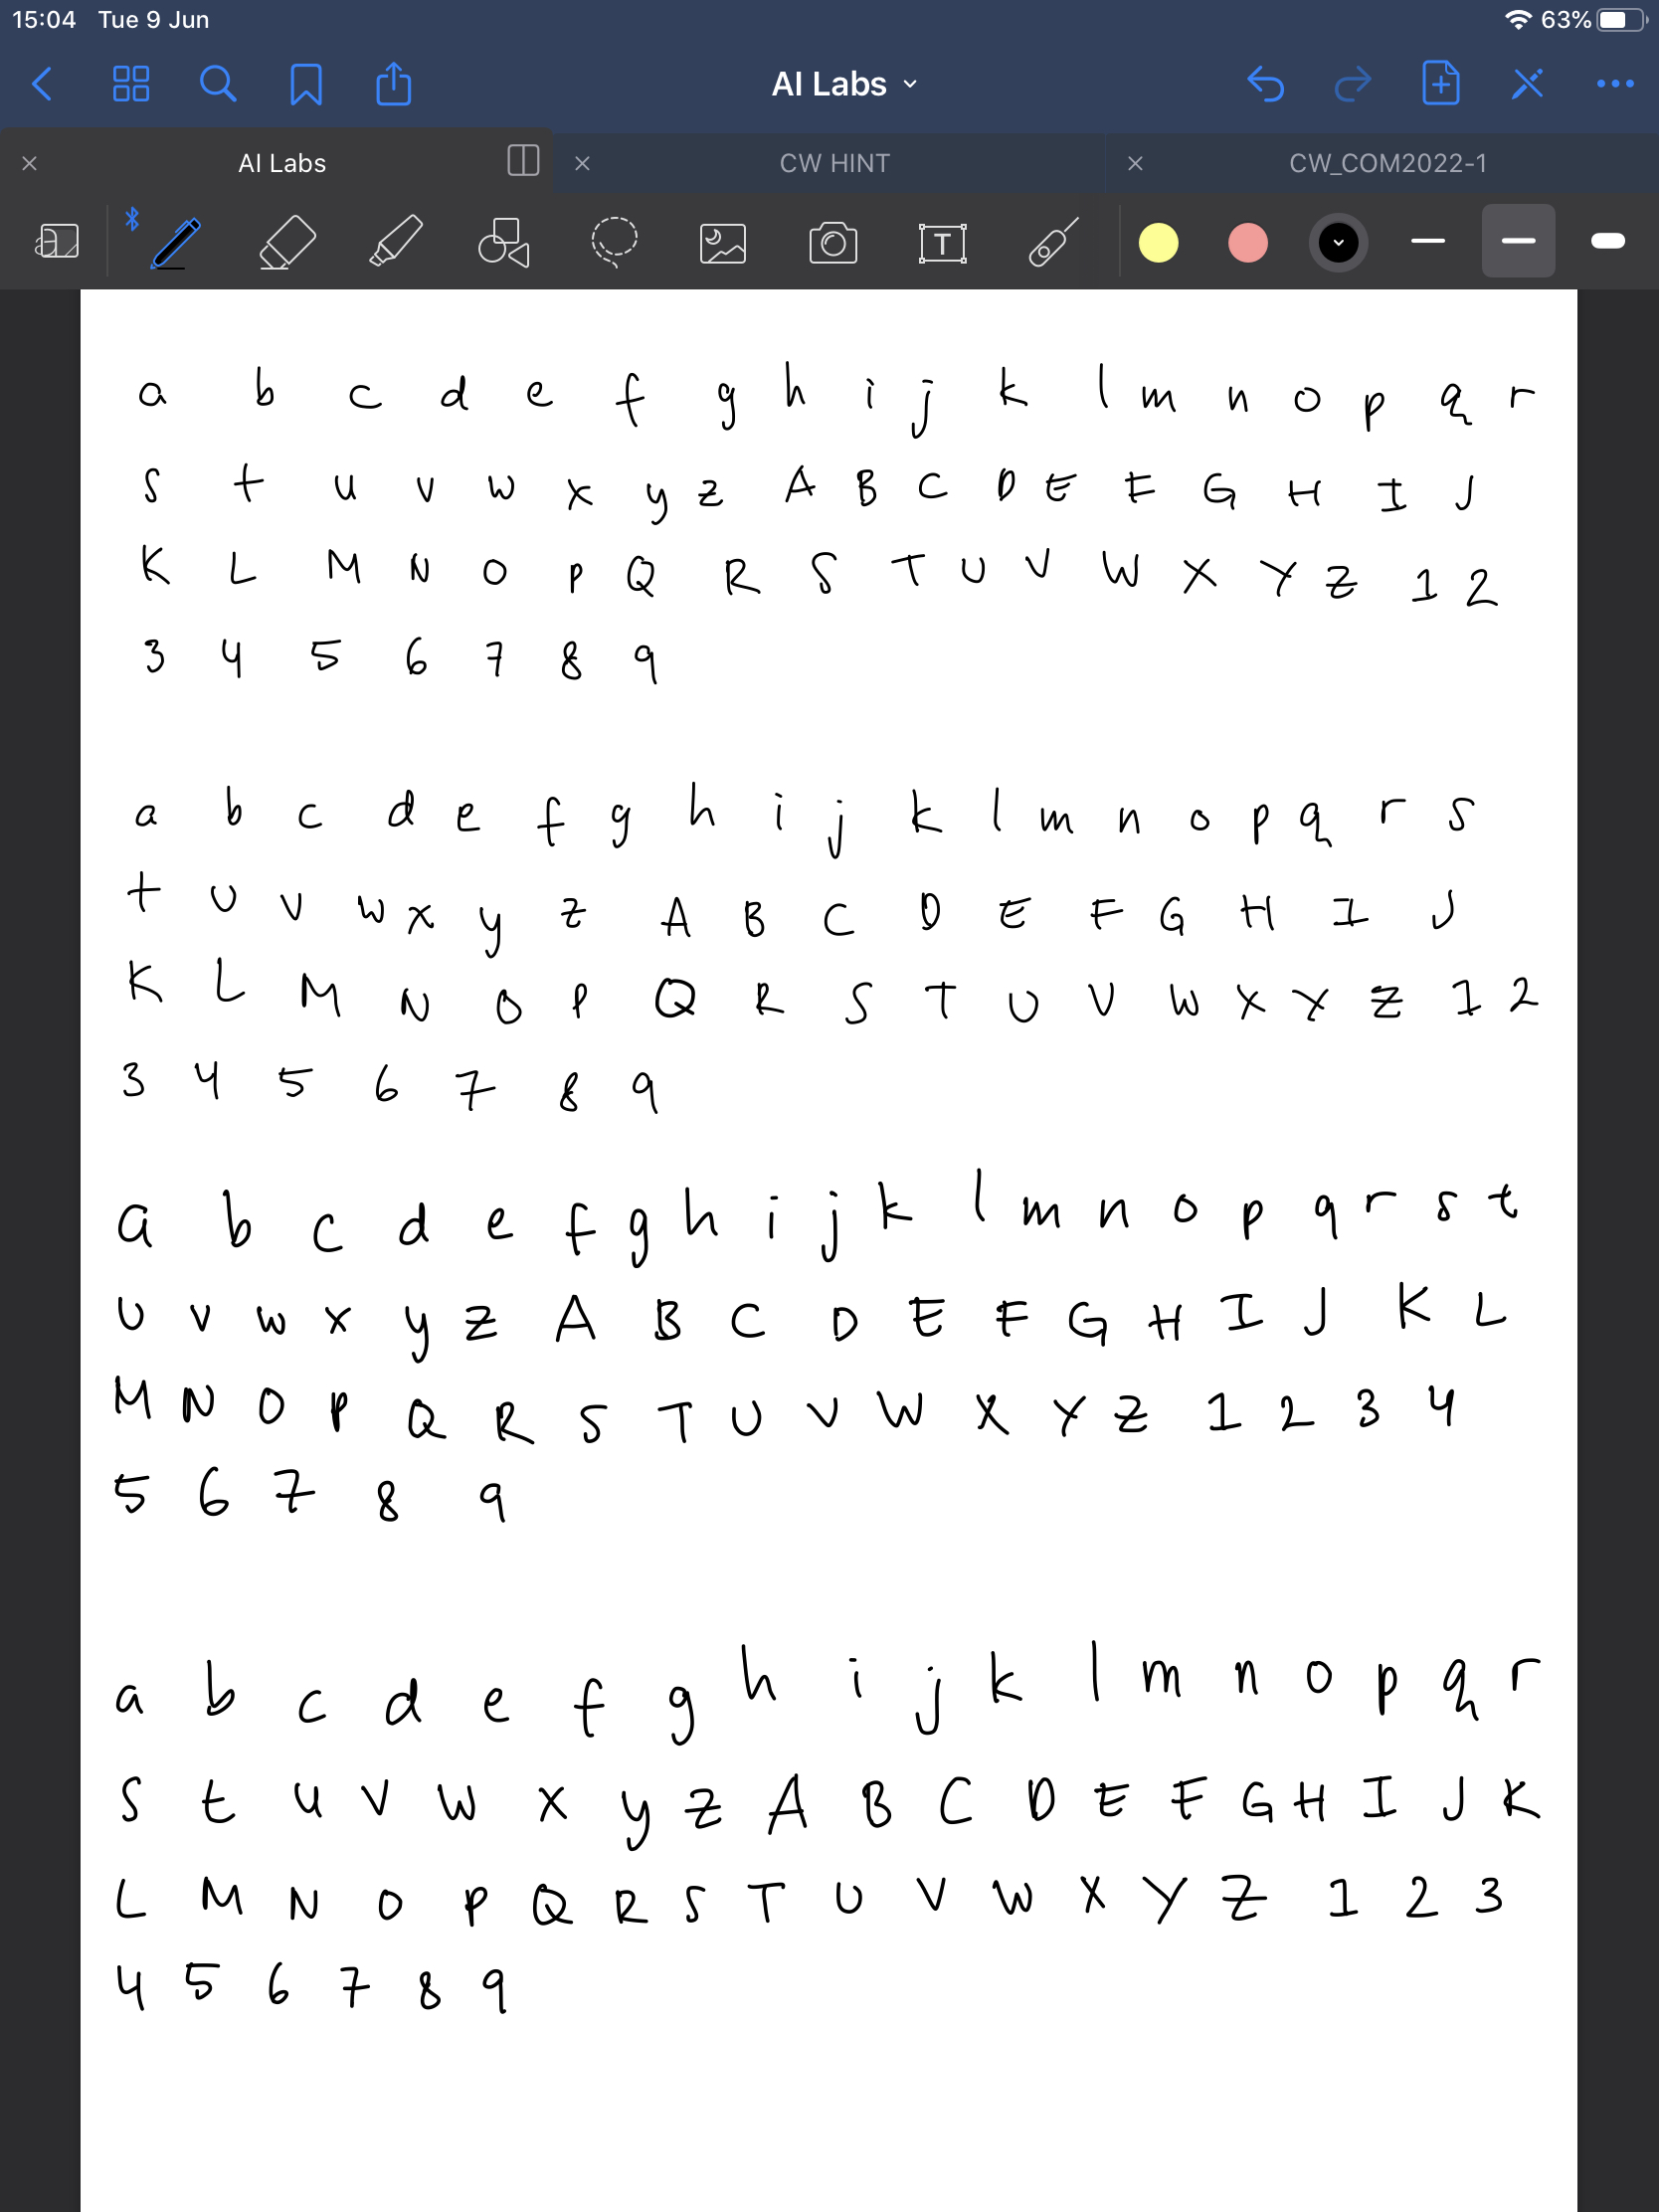 15:04 Tue 9 Jun 63%
AI Labs
AI Labs CW HINT CW_COM2022-1
T
a b c d e f g h i j k l m n o p q r
s t u v w x y z A B C D E F G H I J
K L M N O P Q R S T U V W X Y Z 1 2
3 4 5 6 7 8 9
a b c d e f g h i j k l m n o p q r s
t u v w x y z A B C D E F G H I J
K L M N O P Q R S T U V W X Y Z 1 2
3 4 5 6 7 8 9
a b c d e f g h i j k l m n o p q r s t
u v w x y z A B C D E F G H I J K L
M N O P Q R S T U V W X Y Z 1 2 3 4
5 6 7 8 9
a b c d e f g h i j k l m n o p q r
s t u v w x y z A B C D E F G H I J K
L M N O P Q R S T U V W X Y Z 1 2 3
4 5 6 7 8 9